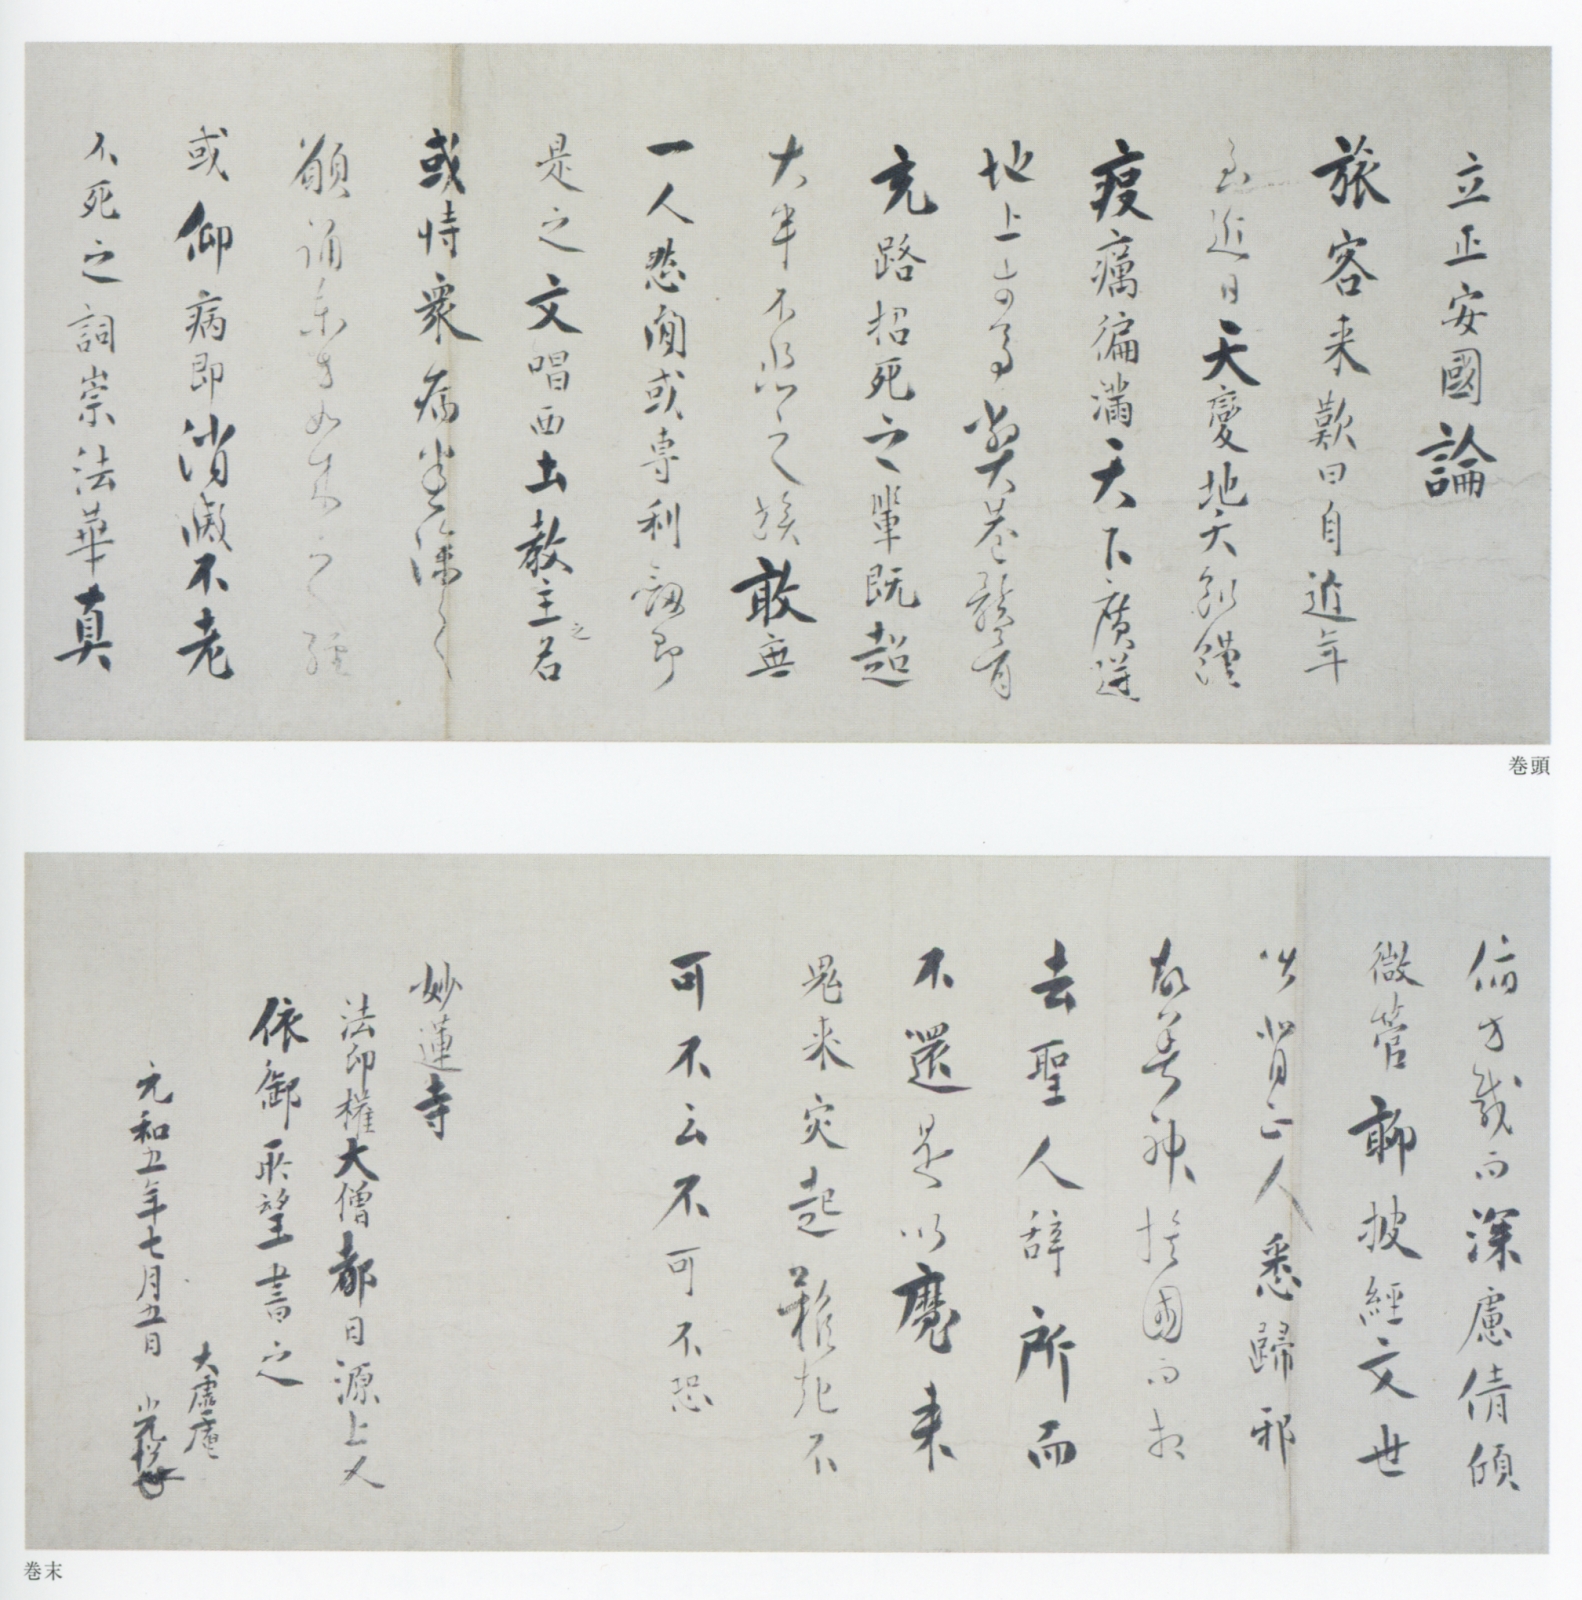 立正安國論
旅客来歎曰自近年
至近日天變地夭飢饉
疫癘遍滿天下廣迸
地上牛馬斃巷骸骨
充路招死之輩既超
大半不悲之族敢無
一人然間或專利劔即
是之文唱西土教主之名
或恃衆病悉除之
願誦東方如来之經
或仰病即消滅不老
不死之詞崇法華真
巻頭
俯方載而深慮倩傾
微管聊披經文世
皆背正人悉歸邪
故善神捨國而相
去聖人辞所而
不還是以魔来
鬼来災起難起不
可不言不可不恐
妙蓮寺
法印権大僧都日源上人
依御所望書之
大虚庵
元和五年七月五日 光悦
巻末